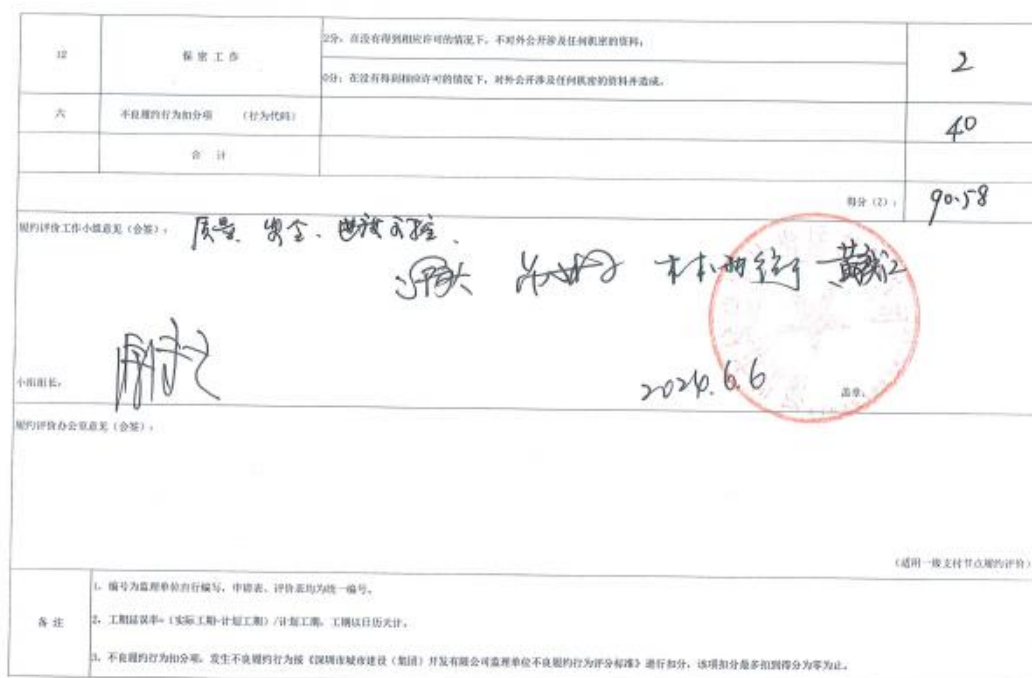 12
保密工作
2分：在没有得到相应许可的情况下，不对外公开涉及任何机密的资料；
2
0分：在没有得到相应许可的情况下，对外公开涉及任何机密的资料并造成。
六
不良履约行为扣分项 （行为代码）
40
合 计
得分（2）：
90.58
履约评价工作小组意见（会签）：
质量、安全、进度可控、
小组组长：
2024.6.6
盖章：
履约评价办公室意见（会签）：
（适用一般支付节点履约评价）
备 注
1、编号为监理单位自行编写，申请表、评价表均为统一编号。
2、工期延误率=（实际工期-计划工期）/计划工期，工期以日历天计。
3、不良履约行为扣分项，发生不良履约行为按《深圳市城市建设（集团）开发有限公司监理单位不良履约行为评分标准》进行扣分，该项扣分最多扣到得分为零为止。